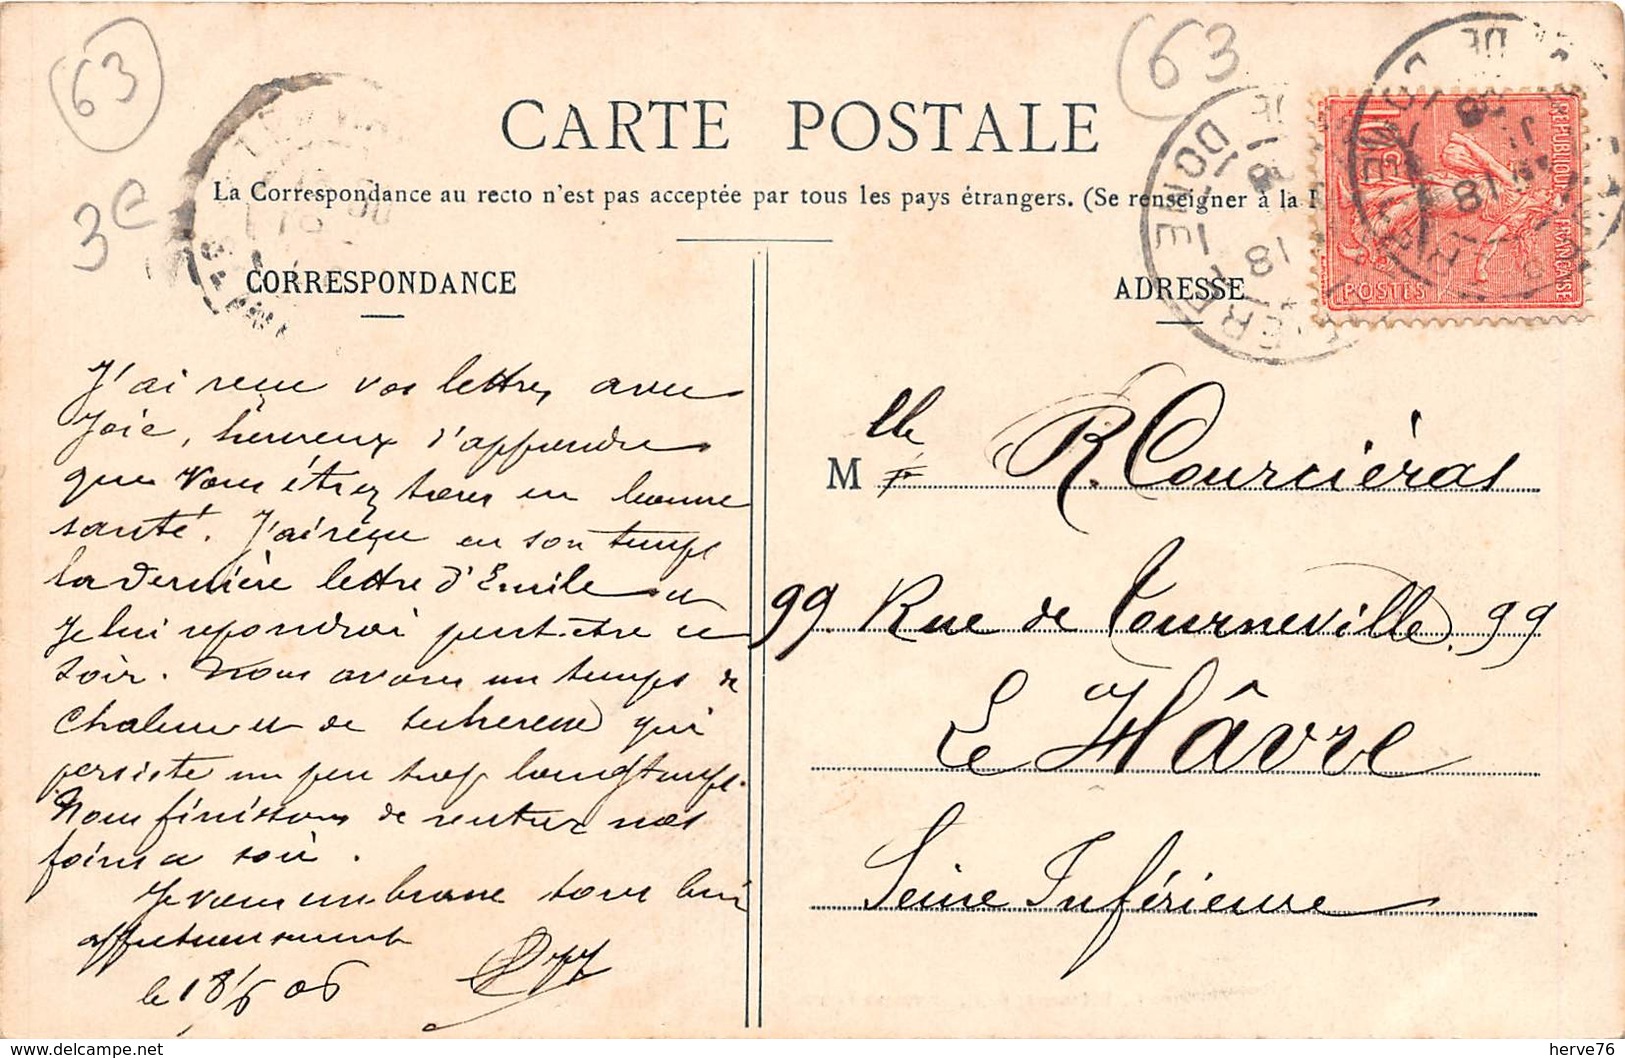 63
63
3e
CARTE POSTALE
La Correspondance au recto n'est pas acceptée par tous les pays étrangers. (Se renseigner à la
CORRESPONDANCE
ADRESSE
REPUBLIQUE FRANÇAISE
POSTES
10c
PUY DE DOME
J'ai reçu vos lettres avec
Joie, heureux d'apprendre
que Vous étiez tous en bonne
santé. J'ai reçu en son temps
la dernière lettre d'Emile et
Je lui repondrai peut-être ce
soir. Nous avons un temps de
chaleur et de secheresse qui
persiste un peu trop longtemps.
Nous finissons de rentrer nos
foins ce soir.
Je vous embrasse tous bien
affectueusement
le 18/6 06
Mlle R. Courciéras
99. Rue de Tourneville. 99
Le Hâvre
Seine Inférieure
herve76
https://www.delcampe.net